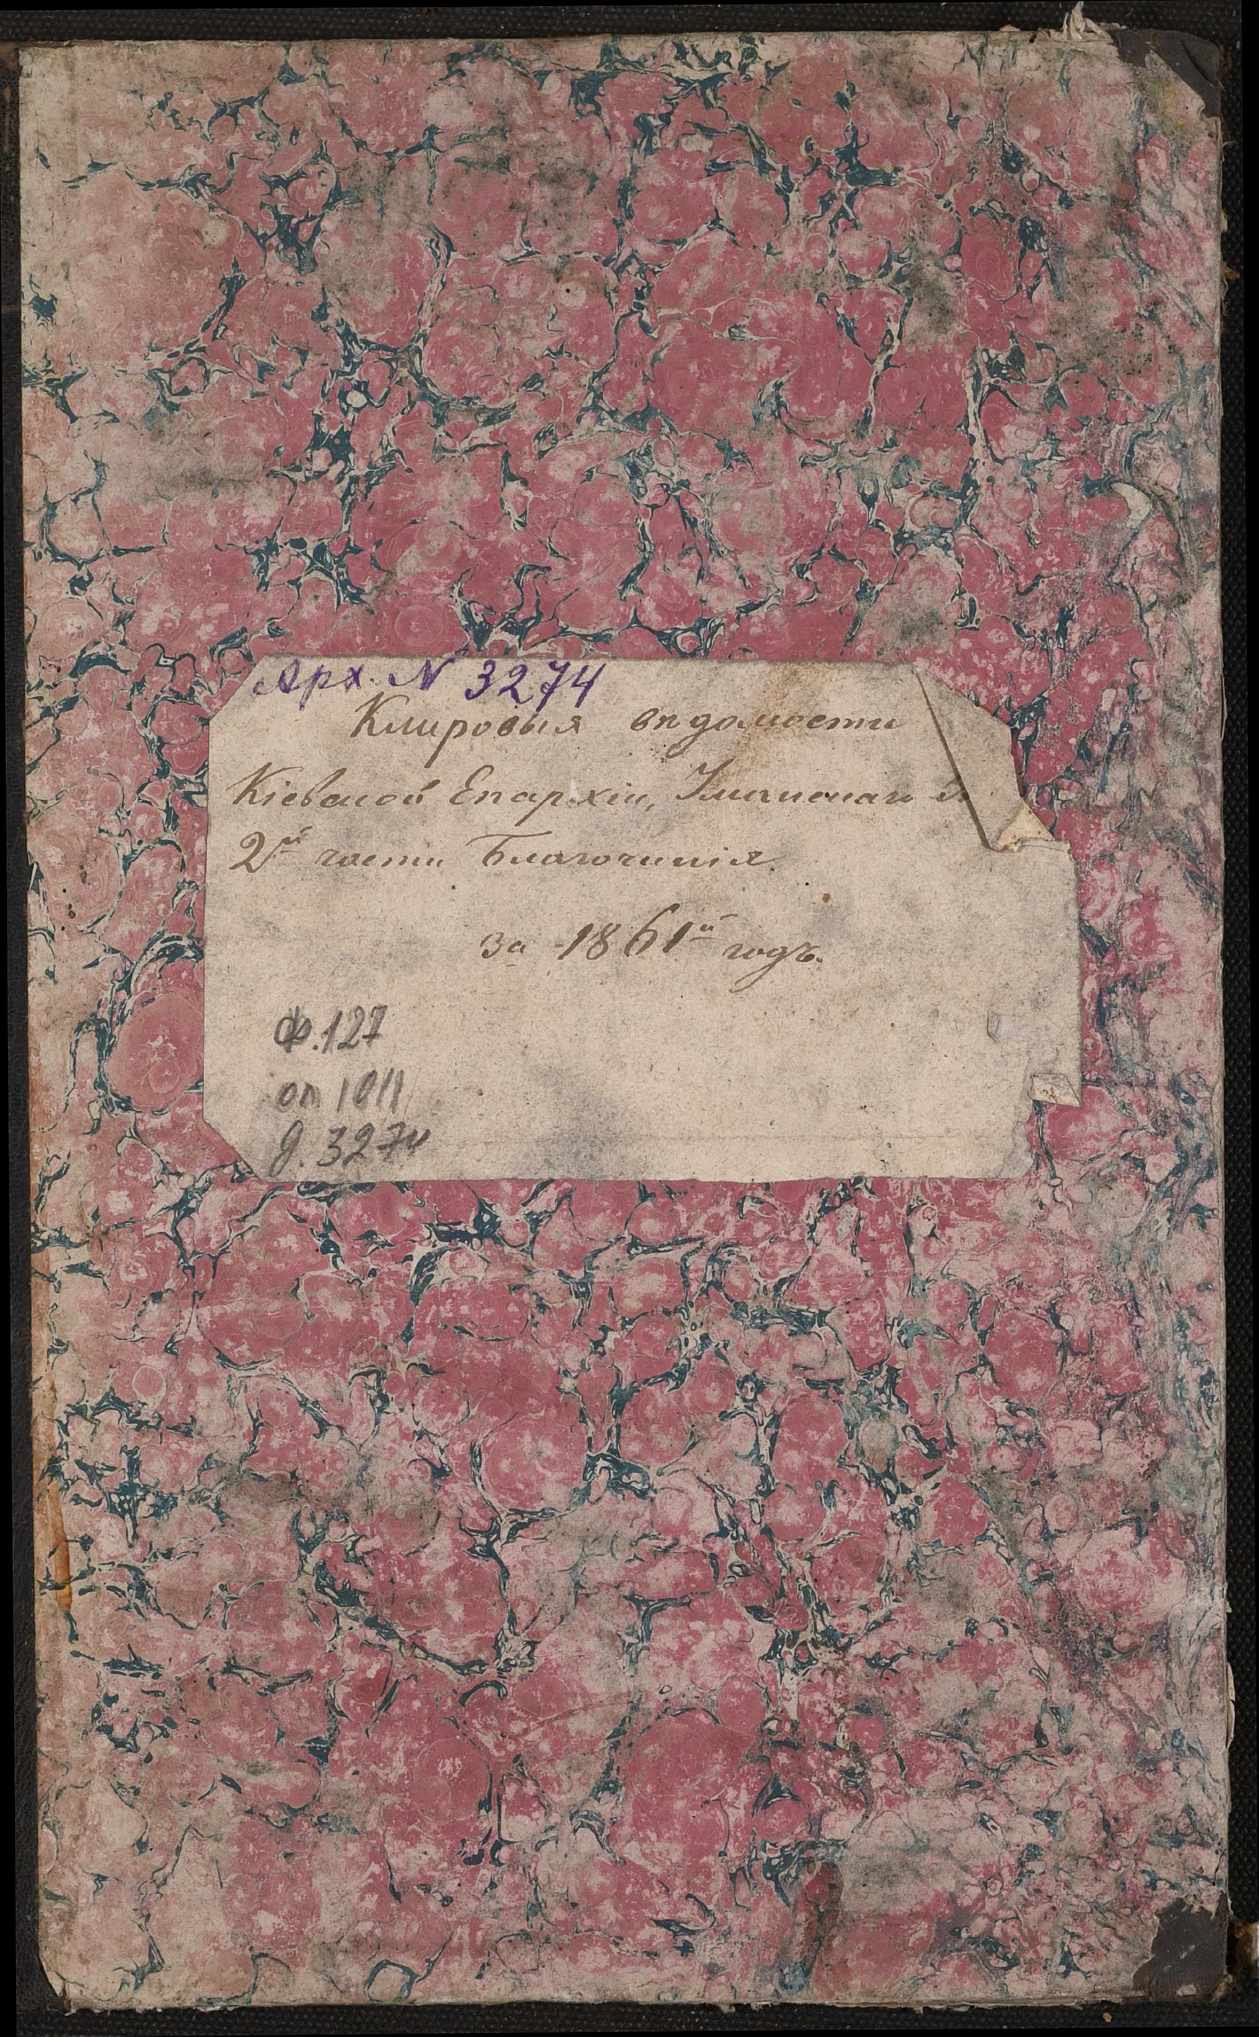 Арх. N 3274
Клировыя вѣдомости
Кіевской Епархіи, Уманскаго
2й части Благочинія
за 1861й годъ.
ф. 127
оп 1011
д. 3274